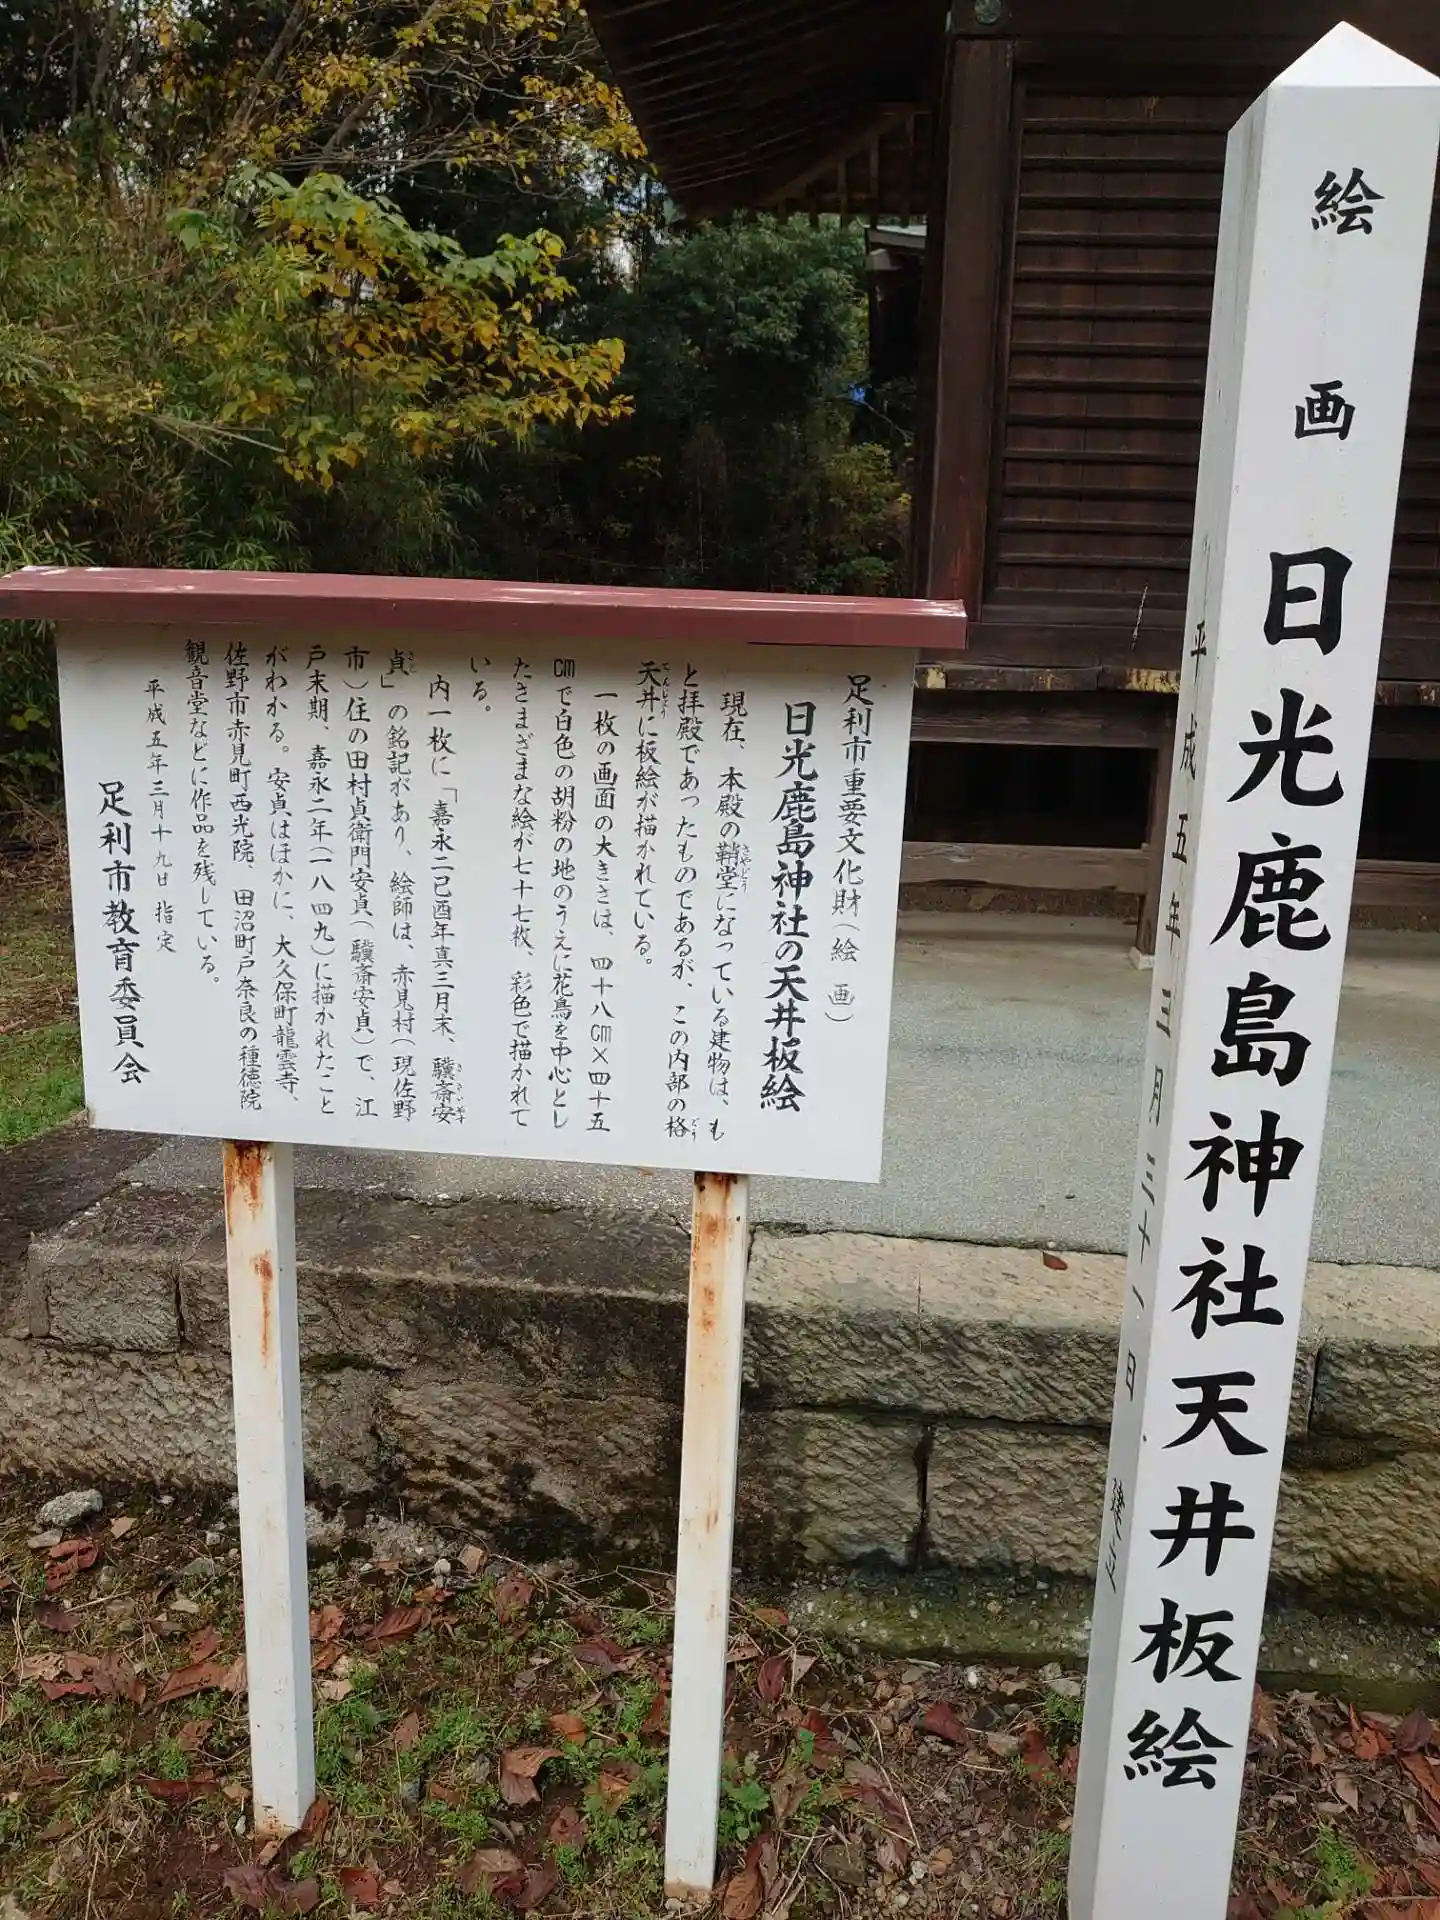 足利市重要文化財(絵画)
日光鹿島神社の天井板絵
現在、本殿の鞘堂になっている建物は、も
と拝殿であったものであるが、この内部の格
天井に板絵が描かれている。
一枚の画面の大きさは、四十八㎝×四十五
㎝で白色の胡粉の地のうえに花鳥を中心とし
たさまざまな絵が七十七枚、彩色で描かれて
いる。
内一枚に「嘉永二己酉年真三月末、驥斎安
貞」の銘記があり、絵師は、赤見村(現佐野
市)住の田村貞衛門安貞(驥斎安貞)で、江
戸末期、嘉永二年(一八四九)に描かれたこと
がわかる。安貞はほかに、大久保町龍雲寺、
佐野市赤見町西光院、田沼町戸奈良の種徳院
観音堂などに作品を残している。
平成五年三月十九日指定
足利市教育委員会
絵画 日光鹿島神社天井板絵
平成五年三月三十一日 建立